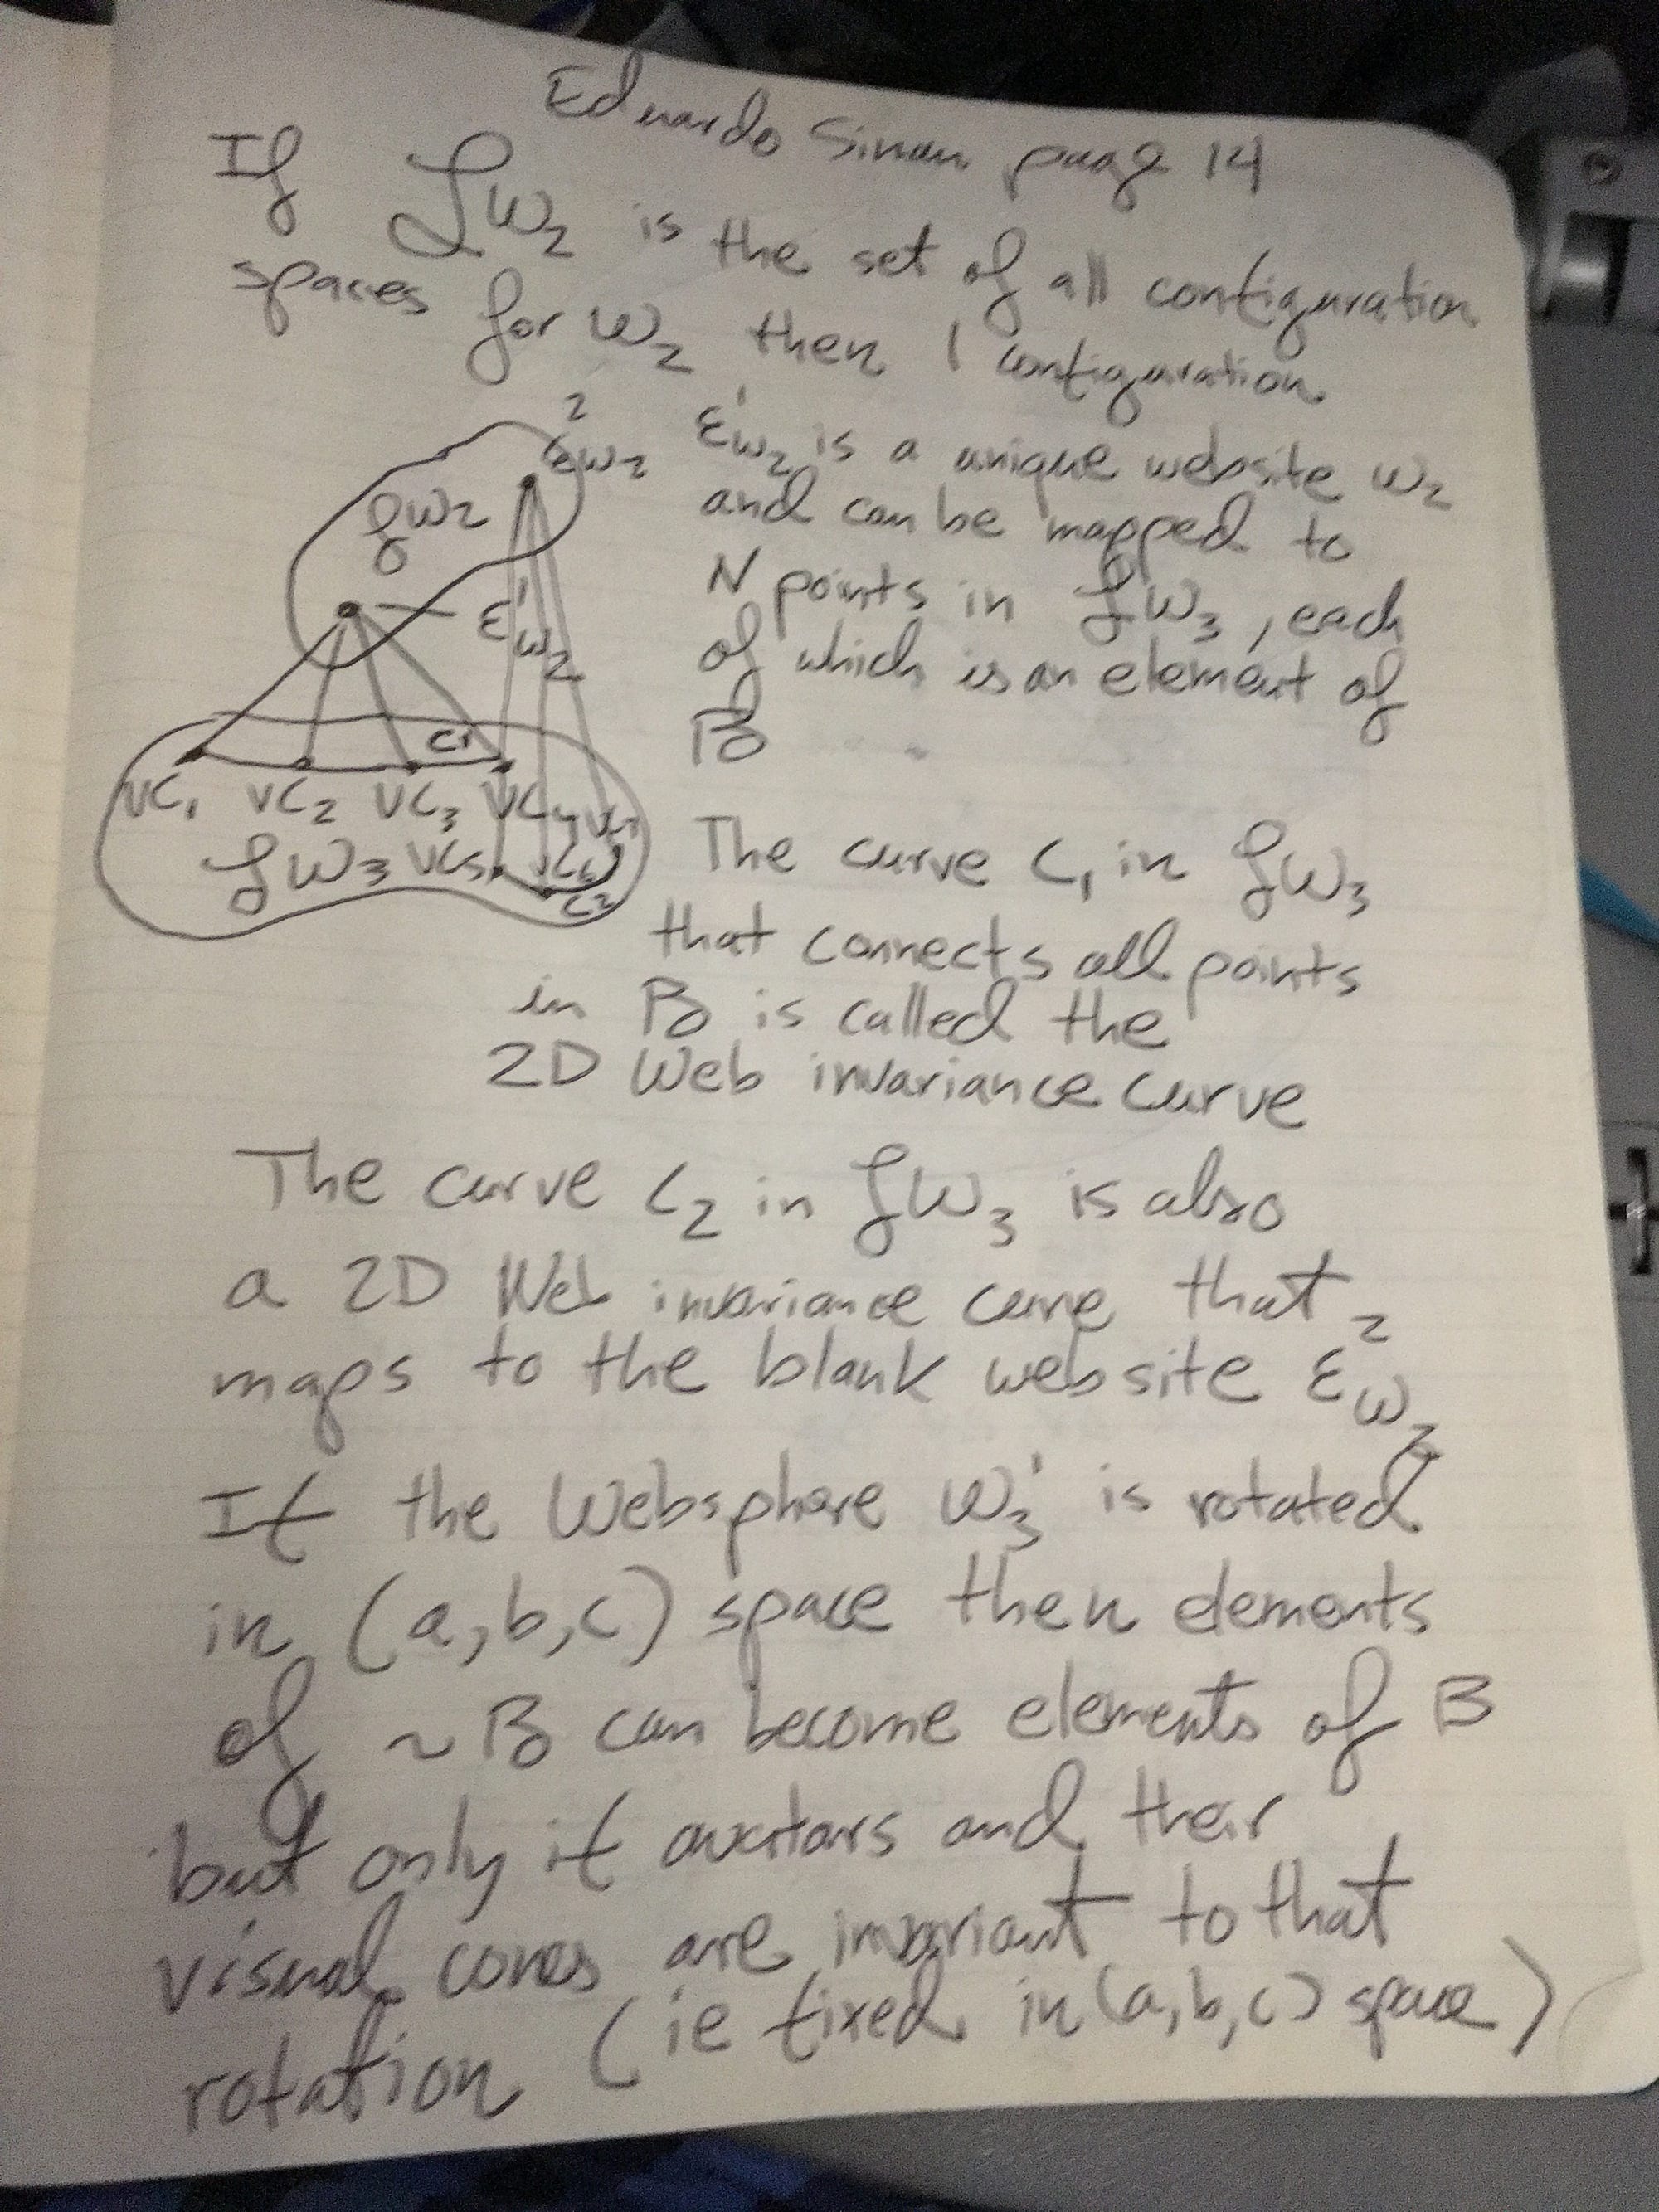 Eduardo Sinan page 14
If ℒω₂ is the set of all configuration
spaces for ω₂ then 1 configuration
ε'ω₂ is a unique website ω₂
and can be mapped to
N points in ℒω₃, each
of which is an element of
B
2
εω₂
ℒω₂
ε'ω₂
C₁
VC₁ VC₂ VC₃ VC₄
ℒω₃ VC₅ VC₆
C₂
The curve C₁ in ℒω₃
that connects all points
in B is called the
2D Web invariance curve
The curve C₂ in ℒω₃ is also
a 2D Web invariance curve that
maps to the blank website ε²ω₂
If the Websphere ω₃' is rotated
in (a,b,c) space then elements
of ~B can become elements of B
but only if avatars and their
visual cones are invariant to that
rotation (ie fixed in (a,b,c) space)